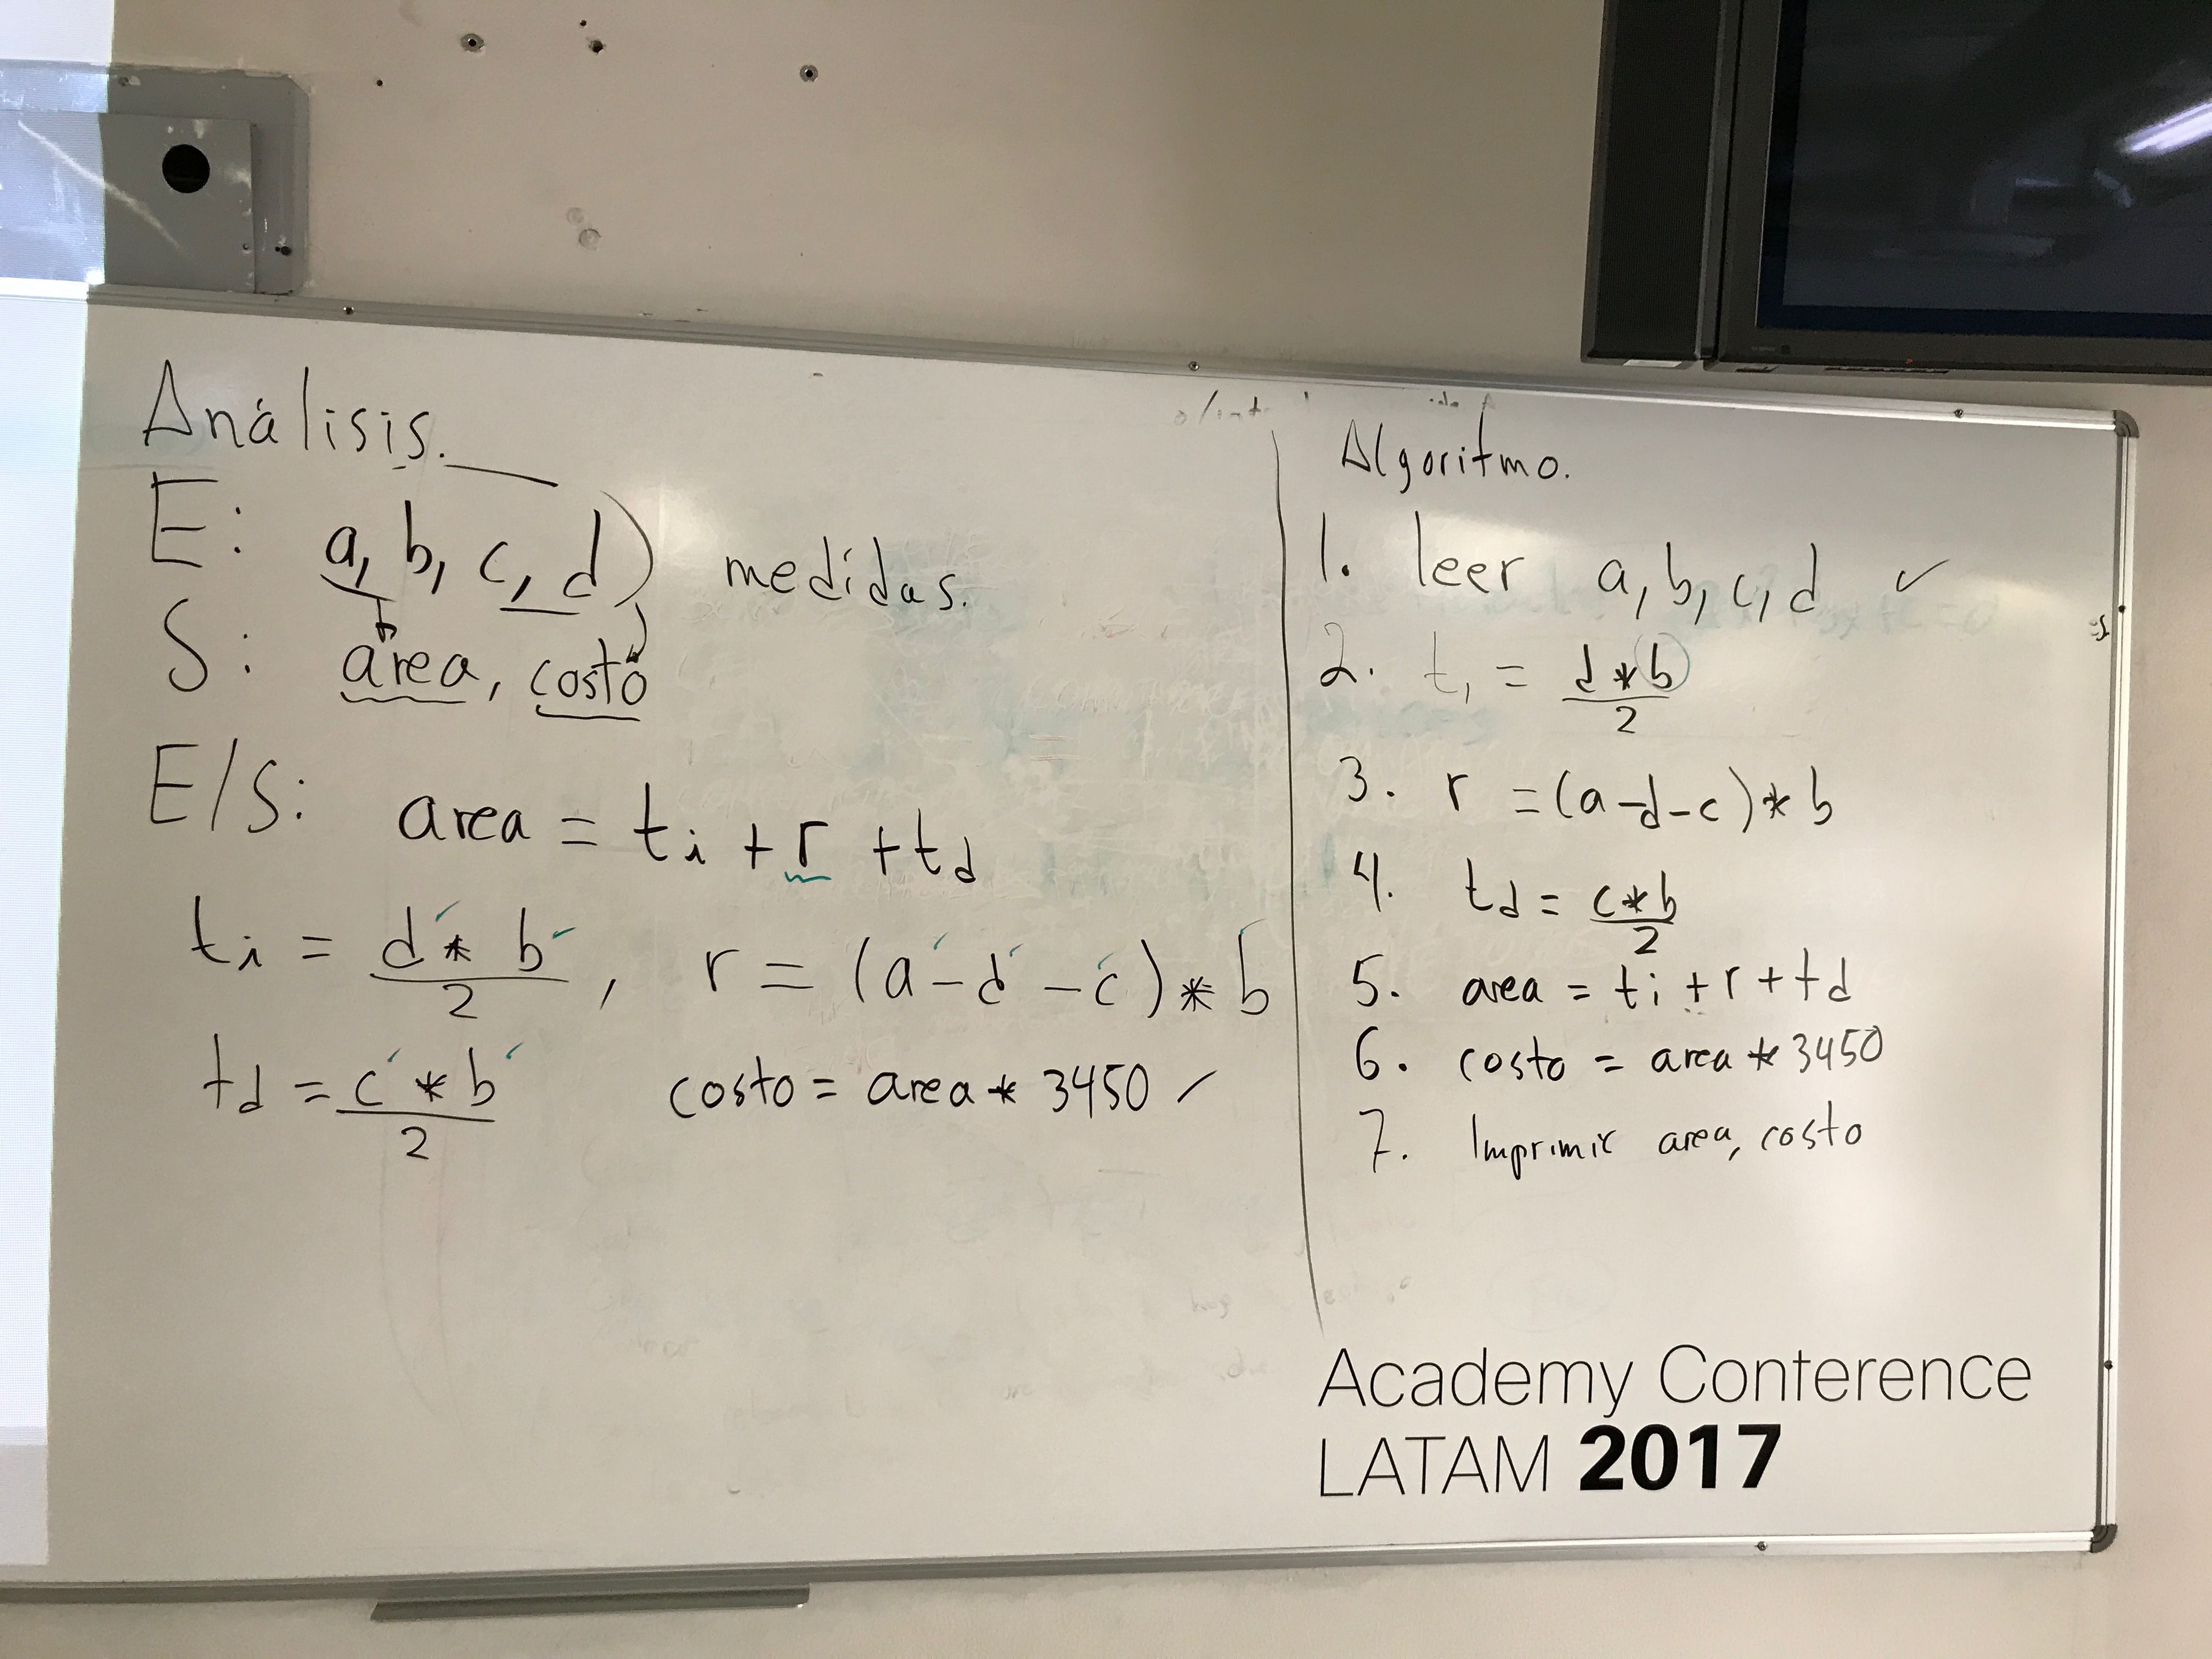 Análisis.
E: a, b, c, d) medidas.
S: area, costo
E/S: area = ti + r + td
ti = d * b / 2 , r = (a - d - c) * b
td = c * b / 2 costo = area * 3450
Algoritmo.
1. leer a, b, c, d ✓
2. ti = d * b / 2
3. r = (a - d - c) * b
4. td = c * b / 2
5. area = ti + r + td
6. costo = area * 3450
7. Imprimir area, costo
Academy Conference
LATAM 2017